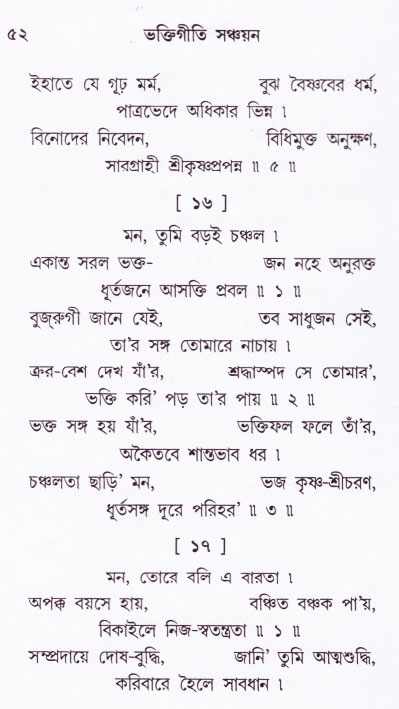 ৫২ ভক্তিগীতি সঞ্চয়ন
ইহাতে যে গূঢ় মর্ম, বুঝ বৈষ্ণবের ধর্ম,
পাত্রভেদে অধিকার ভিন্ন ।
বিনোদের নিবেদন, বিধিমুক্ত অনুক্ষণ,
সাবগ্রাহী শ্রীকৃষ্ণপ্রপন্ন ॥ ৫ ॥
[ ১৬ ]
মন, তুমি বড়ই চঞ্চল ।
একান্ত সরল ভক্ত- জন নহে অনুরক্ত
ধূর্তজনে আসক্তি প্রবল ॥ ১ ॥
বুজ্‌রুগী জানে যেই, তব সাধুজন সেই,
তা'র সঙ্গ তোমারে নাচায় ।
ক্রর-বেশ দেখ যাঁ'র, শ্রদ্ধাস্পদ সে তোমার',
ভক্তি করি' পড় তা'র পায় ॥ ২ ॥
ভক্ত সঙ্গ হয় যাঁ'র, ভক্তিফল ফলে তাঁ'র,
অকৈতবে শান্তভাব ধর ।
চঞ্চলতা ছাড়ি' মন, ভজ কৃষ্ণ-শ্রীচরণ,
ধূর্তসঙ্গ দূরে পরিহর' ॥ ৩ ॥
[ ১৭ ]
মন, তোরে বলি এ বারতা ।
অপক্ক বয়সে হায়, বঞ্চিত বঞ্চক পা'য়,
বিকাইলে নিজ-স্বতন্ত্রতা ॥ ১ ॥
সম্প্রদায়ে দোষ-বুদ্ধি, জানি' তুমি আত্মশুদ্ধি,
করিবারে হৈলে সাবধান ।